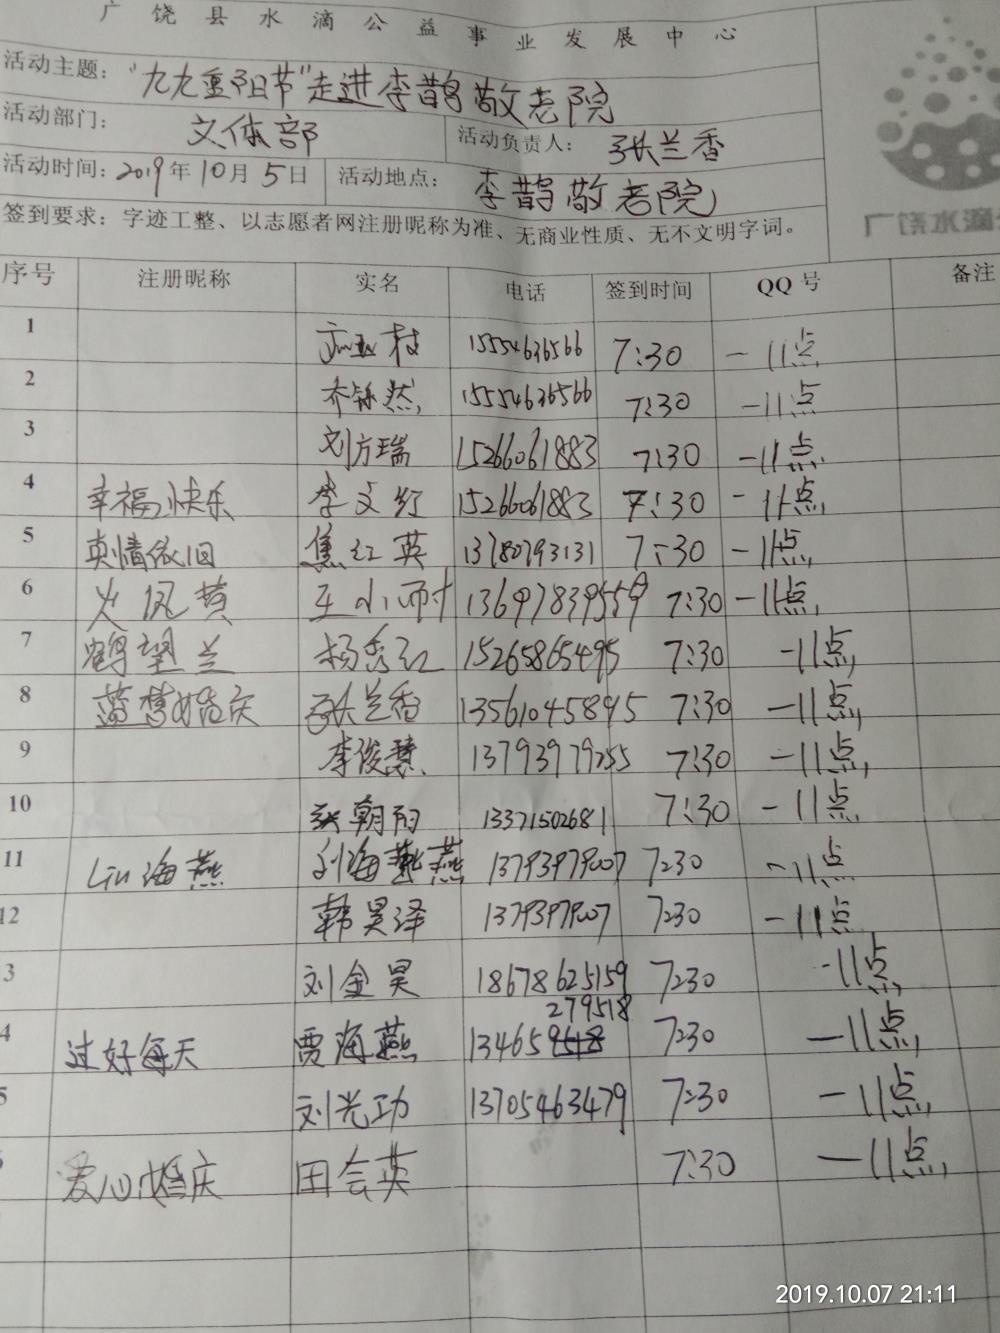 广饶县水滴公益事业发展中心
活动主题：“九九重阳节”走进李鹊敬老院
活动部门： 文体部 活动负责人： 张兰香
活动时间：2019年10月5日 活动地点： 李鹊敬老院
签到要求：字迹工整、以志愿者网注册昵称为准、无商业性质、无不文明字词。
序号 注册昵称 实名 电话 签到时间 QQ号 备注
1 枝 15554636566 7:30 -11点
2 然 15554636566 7:30 -11点
3 刘方瑞 15266061883 7:30 -11点
4 幸福快乐 李文红 15266061883 7:30 -11点
5 真情依旧 焦红英 13780793131 7:30 -11点
6 火凤黄 王小雨 13697839559 7:30 -11点
7 鹤望兰 杨秀红 15265865495 7:30 -11点
8 蓝梦婚庆 张兰香 13561045895 7:30 -11点
9 李俊慧 13793979255 7:30 -11点
10 张朝阳 13371502681 7:30 -11点
11 Liu海燕 刘海燕 13793979007 7:30 -11点
12 韩昊泽 13793979007 7:30 -11点
3 刘金昊 18678625159 7:30 -11点
279518
4 过好每天 贾海燕 13465 7:30 -11点
5 刘光功 13705463479 7:30 -11点
爱心婚庆 田会英 7:30 -11点
2019.10.07 21:11